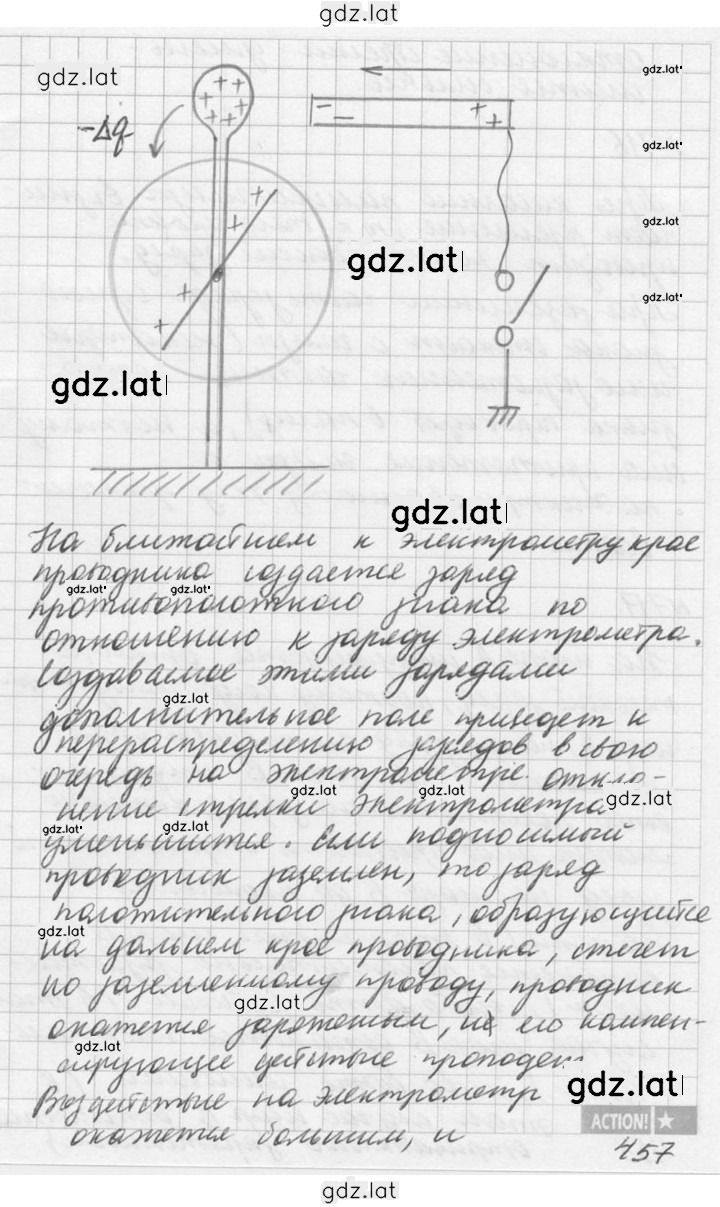 gdz.lat
gdz.lat
gdz.lat
-Δq
gdz.lat
gdz.lat
gdz.lat
gdz.lat
gdz.lat
gdz.lat
На ближайшем к электрометру крае
проводника создается заряд
gdz.lat gdz.lat
противоположного знака по
отношению к заряду электрометра.
Создаваемое этими зарядами
gdz.lat
дополнительное поле приведет к
перераспределению зарядов в свою
очередь на электрометре. Откло-
gdz.lat gdz.lat gdz.lat
нение стрелки электрометра
gdz.lat gdz.lat
уменьшится. Если подносимый
проводник заземлен, то заряд
положительного знака, образующийся
gdz.lat
на дальнем крае проводника, стечет
по заземленному проводу, проводник
gdz.lat
окажется заряженным, и его компен-
gdz.lat
сирующее действие пропадет
gdz.lat
Воздействие на электрометр
ACTION!
окажется большим, и
457
gdz.lat